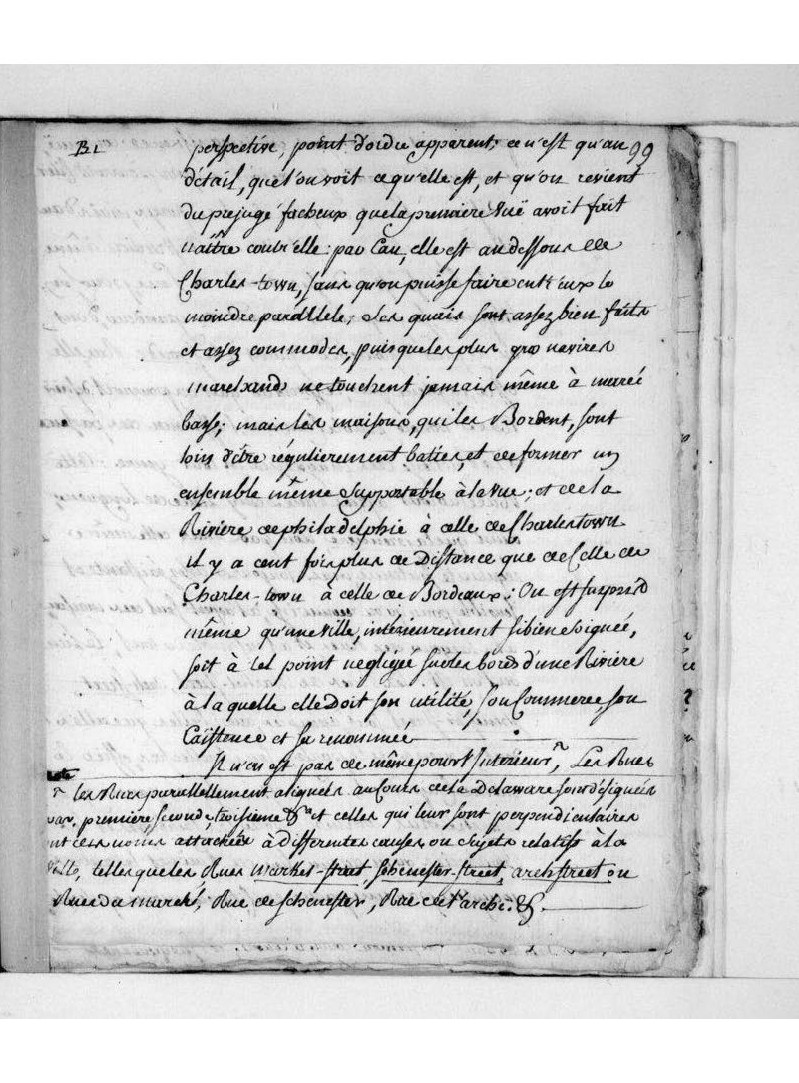 B1
99
perspective, point d'ordre apparent; ce n'est qu'au
détail, que l'on voit ce qu'elle est, et qu'on revient
du prejugé facheux que la premiere vuë avoit fait
naître contr'elle: par Eau, elle est au dessous de
Charles-town, sans qu'on puisse faire entr'eux le
moindre parallele; Les quais sont assez bien faits
et assez commodes, puisque les plus gros navires
marchands ne touchent jamais même à mareé
basse; mais les maisons, qui les Bordent, sont
loin d'être régulierement baties, et de former un
ensemble même supportable à la vue; et de la
Riviere de philadelphie à celle de Charlestown
il y a cent fois plus de Distance que de Celle de
Charles-town à celle de Bordeaux: On est surpris
même qu'une ville, intérieurement si bien soignée,
soit à tel point negligée sur les bords d'une Riviere
à la quelle elle Doit son utilité, son Commerce son
Existence et sa renommée
Il n'en est pas de même pour l'Interieur, Les Rues
Note
les Rues parallellement alignées au Cours de la Delaware sont désignées
par premiere, seconde, troisieme &a et celles qui leur sont perpendiculaires
ont des noms attachés à differentes causes, ou sujets relatifs à la
Ville, telles que les Rues Market-street Schenester-street, arch street ou
Rues du marché, Rue de Schenester, Rue de l'arche. &